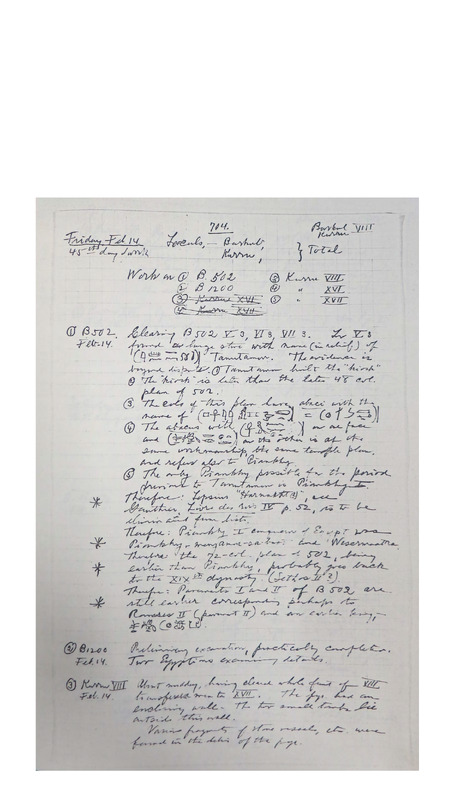 704.
Friday Feb 14. Levels, – Barkal, Barkal VIII
45th day's work Kurru, } Total Kurru
Work on ① B. 502 ③ Kurru VIII
② B 1200 ④ " XVI
③ Kurru XVI ⑤ " XVII
④ Kurru XVII
① B 502. Clearing B 502 V. 3, VI 3, VII 3. In V. 3
Feb. 14. found a large stone with name (in relief) of
Tanutamon. The evidence is
beyond dispute. ① Tanutamon built the "kiosk"
② The "kiosk" is later than the later 45 col.
plan of 502.
③ The cols of this plan have abaci with the
name of
④ The abacus with on one face
and on the other is of the
same workmanship, the same temple plan.
And refers also to Piankhy.
⑤ The only Piankhy possible for the period
previous to Tanutamon is Piankhy I
Therefore: Lepsius
Gauthier, Livre des rois IV p. 52, is to be
eliminated from lists.
Therefore: Piankhy I conqueror of Egypt was
Piankhy and Weserma'tra
Therefore the 72-col. plan of 502, being
earlier than Piankhy, probably goes back
to the XIXth dynasty (Sethos II?)
Therefore: Pavements I and II of B 502 are
still earlier corresponding perhaps to
Rameses II (pavement II) and an earlier king,–
② B1200 Preliminary excavation, practically completion.
Feb 14. Two Egyptians examining details.
③ Kurru VIII About midday, having cleared whole front of VIII
Feb. 14. transferred men to XVII. The pyr. had an
enclosing wall. The two small tombs lie
outside this wall.
Various fragments of stone vessels, etc. were
found in the debris of the pyr.